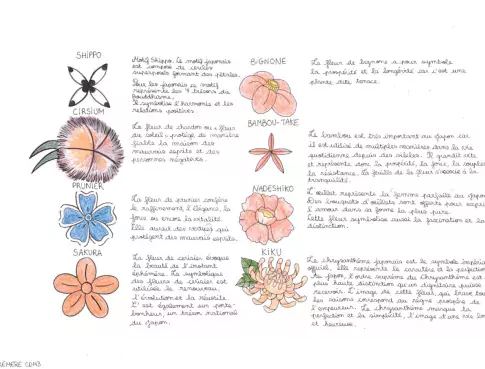 SHIPPO
Motif Shippo. Ce motif japonais
est composé de cercles
superposés formant des pétales.
Pour les japonais ce motif
représente les 7 trésors du
bouddhisme.
Il symbolise l'harmonie et les
relations positives
CIRSIUM
La fleur de chardon ou « fleur
du soleil » protège de manière
fiable la maison des
mauvais esprits et des
personnes négatives.
PRUNIER
La fleur de prunier confère
le raffinement, l'élégance, la
force ou encore la vitalité.
Elle aurait des vertus qui
protègent des mauvais esprits.
SAKURA
La fleur de cerisier évoque
la beauté de l'instant
éphémère. La symbolique
des fleurs de cerisier est
le renouveau,
l'évolution et la réussite.
C'est également un porte-
bonheur, un trésor national
du Japon.
BIGNONE
La fleur de bignone a pour symbole
la prospérité et la longévité car c'est une
plante dite tenace.
BAMBOU-TAKE
Le bambou est très important au Japon car
il est utilisé de multiples manières dans la vie
quotidienne depuis des siècles. Il grandit vite
et représente donc la prospérité, la force, la souplesse
la résistance. La feuille de la fleur s'associe à la
tranquilité.
NADESHIKO
L'œillet représente la femme parfaite au Japon
Des bouquets d'œillets sont offerts pour expri
l'amour dans sa forme la plus pure.
Cette fleur symbolise aussi la fascination et la
distinction.
KIKU
Le chrysanthème japonais est le symbole impéria
officiel. Elle représente le caractère et la perfection
Au Japon, l'ordre suprême du Chrysanthème est
plus haute distinction qu'un dignitaire puisse
recevoir. L'image de cette fleur, qui brave tou
les saisons correspond au règne prospère de
l'empereur. Le chrysanthème marque la
perfection et la simplicité, l'image d'une vie
et heureuse.
CDM3